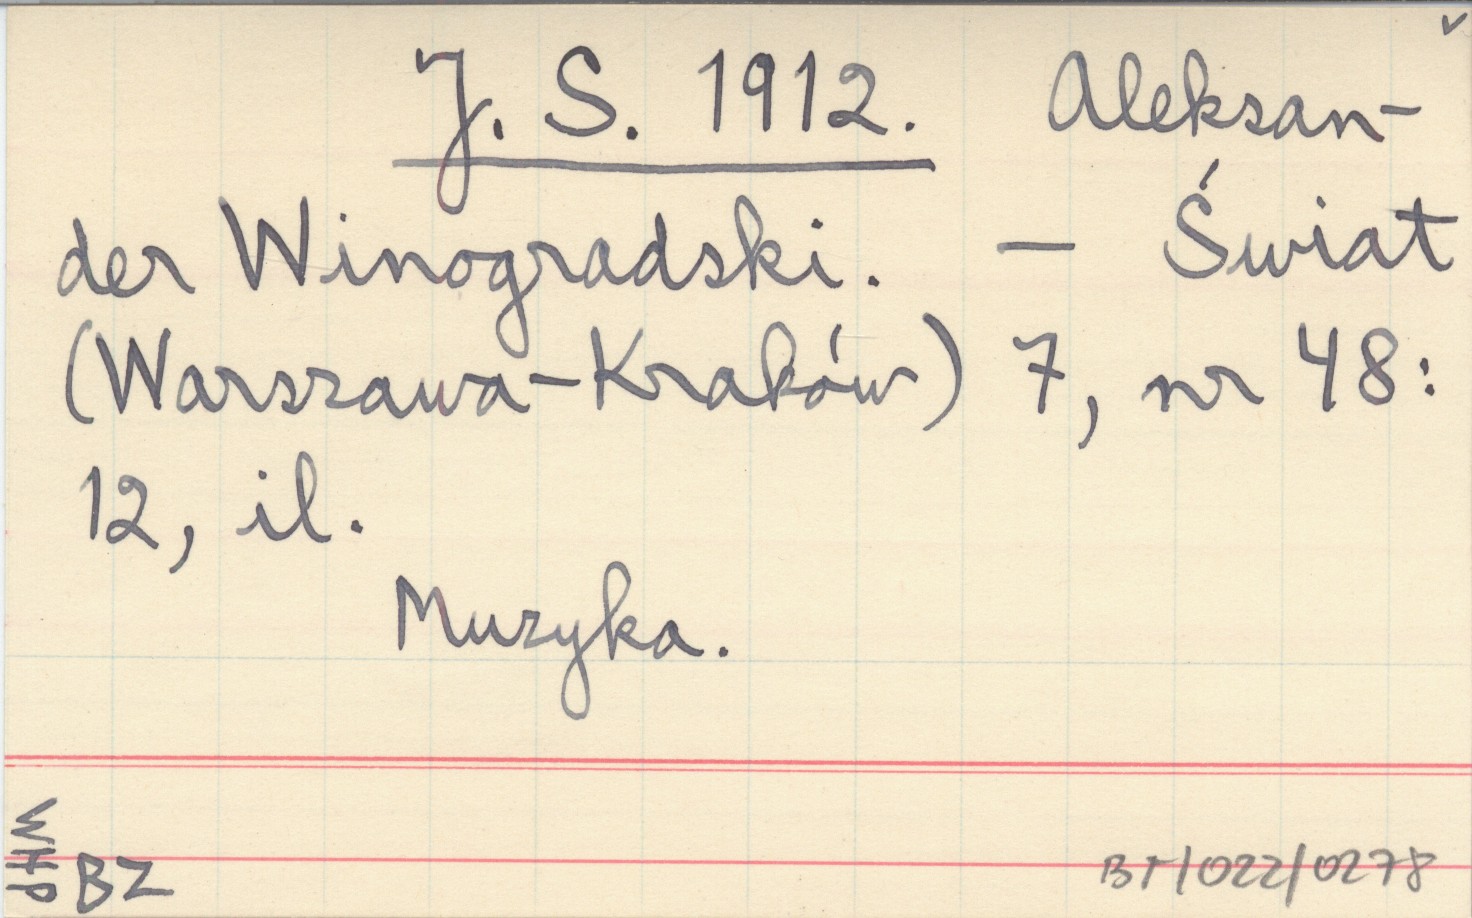 J. S. 1912. Aleksan-
der Winogradski. — Świat
(Warszawa-Kraków) 7, nr 48:
12, il.
Muzyka.
BZ
BT/022/0278